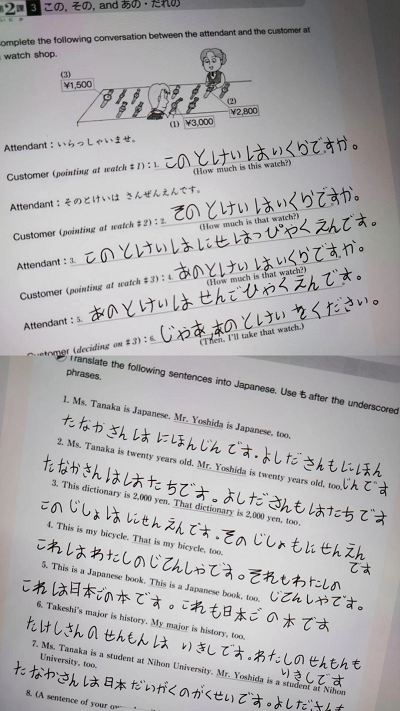 第2課 3 この, その, and あの・だれの
omplete the following conversation between the attendant and the customer at
watch shop.
(3)
¥1,500
(2)
¥2,800
(1) ¥3,000
Attendant：いらっしゃいませ。
Customer (pointing at watch #1)：1. このとけいはいくらですか。
(How much is this watch?)
Attendant：そのとけいは さんぜんえんです。
Customer (pointing at watch #2)：2. そのとけいはいくらですか。
(How much is that watch?)
Attendant：3. このとけいはにせはっぴゃくえんです。
Customer (pointing at watch #3)：4. あのとけいはいくらですか。
(How much is that watch?)
Attendant：5. あのとけいはせんごひゃくえんです。
Customer (deciding on #3)：6. じゃあ、あのとけいをください。
(Then, I'll take that watch.)
Translate the following sentences into Japanese. Use も after the underscored
phrases.
1. Ms. Tanaka is Japanese. Mr. Yoshida is Japanese, too.
たなかさんはにほんじんです。よしださんもにほん
じんです
2. Ms. Tanaka is twenty years old. Mr. Yoshida is twenty years old, too.
たなかさんははたちです。よしださんもはたちです
3. This dictionary is 2,000 yen. That dictionary is 2,000 yen, too.
このじしょはにせんえんです。そのじしょもにせんえん
です
4. This is my bicycle. That is my bicycle, too.
これはわたしのじてんしゃです。それもわたしの
じてんしゃです。
5. This is a Japanese book. This is a Japanese book, too.
これは日本ごの本です。これも日本ごの本です
6. Takeshi's major is history. My major is history, too.
たけしさんのせんもんは いきしです。わたしのせんもんも
いきしです
7. Ms. Tanaka is a student at Nihon University. Mr. Yoshida is a student at Nihon
University, too.
たなかさんは日本だいがくのがくせいです。よしださんも
8. (A sentence of your own